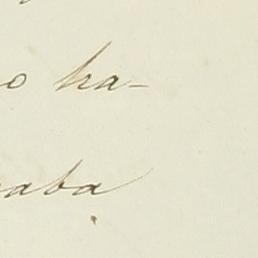 o ha-
aba